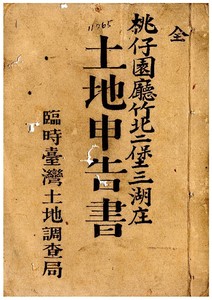 全
桃仔園廳竹北二堡三湖庄
土地申告書
臨時臺灣土地調查局